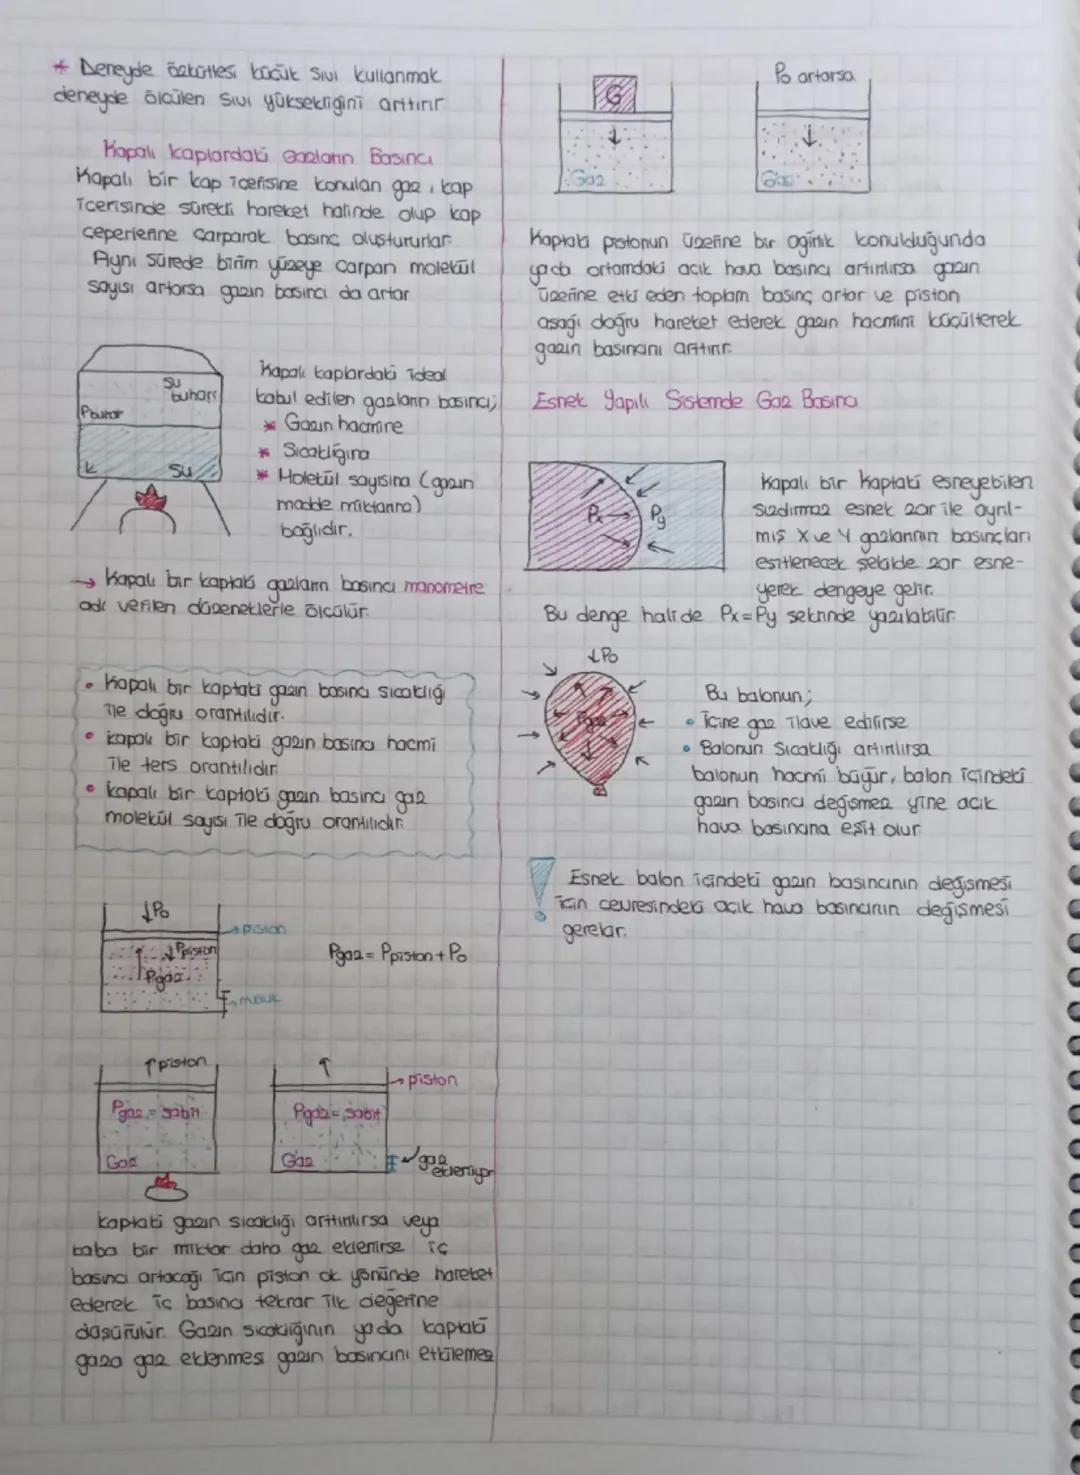 * Deneyde özkütlesi küçük sıvı kullanmak
deneyde ölçülen sıvı yüksekliğini arttırır
Kapalı kaplardaki Gazların Basıncı
Kapalı bir kap içerisine konulan gaz, kap
içerisinde sürekli hareket halinde olup kap
çeperlerine çarparak basınç oluştururlar.
Aynı sürede birim yüzeye çarpan molekül
sayısı artarsa gazın basıncı da artar
su
buharı
Pbuhar
su
Kapalı kaplardaki ideal
kabul edilen gazların basıncı;
* Gazın hacmine
* Sıcaklığına
* Molekül sayısına (gazın
madde miktarına)
bağlıdır.
→ Kapalı bir kaptaki gazların basıncı manometre
adı verilen düzeneklerle ölçülür.
• Kapalı bir kaptaki gazın basıncı sıcaklığı
ile doğru orantılıdır.
• kapalı bir kaptaki gazın basıncı hacmi
ile ters orantılıdır
• kapalı bir kaptaki gazın basıncı gaz
molekül sayısı ile doğru orantılıdır.
↓Po
→ piston
↓Ppiston
↑Pgaz
musluk
Pgaz = Ppiston + Po
↑piston
Pgaz = sabit
Gaz
↑
→ piston
Pgaz = sabit
Gaz
gaz
ekleniyor
Kaptaki gazın sıcaklığı arttırılırsa veya
kaba bir miktar daha gaz eklenirse iç
basıncı artacağı için piston ok yönünde hareket
ederek iç basıncı tekrar ilk değerine
düşürülür. Gazın sıcaklığının yada kaptaki
gaza gaz eklenmesi gazın basıncını etkilemez
G
↓
Gaz
Po artarsa
↓
Gaz
Kaptaki pistonun üzerine bir ağırlık konulduğunda
yada ortamdaki açık hava basıncı artırılırsa gazın
üzerine etki eden toplam basınç artar ve piston
aşağı doğru hareket ederek gazın hacmini küçülterek
gazın basıncını arttırır.
Esnek Yapılı Sistemde Gaz Basıncı
Px→
Py
Kapalı bir Kaptaki esneyebilen
sızdırmaz esnek zar ile ayrıl-
mış X ve Y gazlarının basınçları
eşitlenecek şekilde zar esne-
yerek dengeye gelir.
Bu denge halide Px=Py şeklinde yazılabilir.
↓Po
Pgaz
Bu balonun;
• İçine gaz ilave edilirse
• Balonun sıcaklığı artırılırsa
balonun hacmi büyür, balon içindeki
gazın basıncı değişmez yine açık
hava basıncına eşit olur
! Esnek balon içindeki gazın basıncının değişmesi
için çevresindeki açık hava basıncının değişmesi
gerekir.